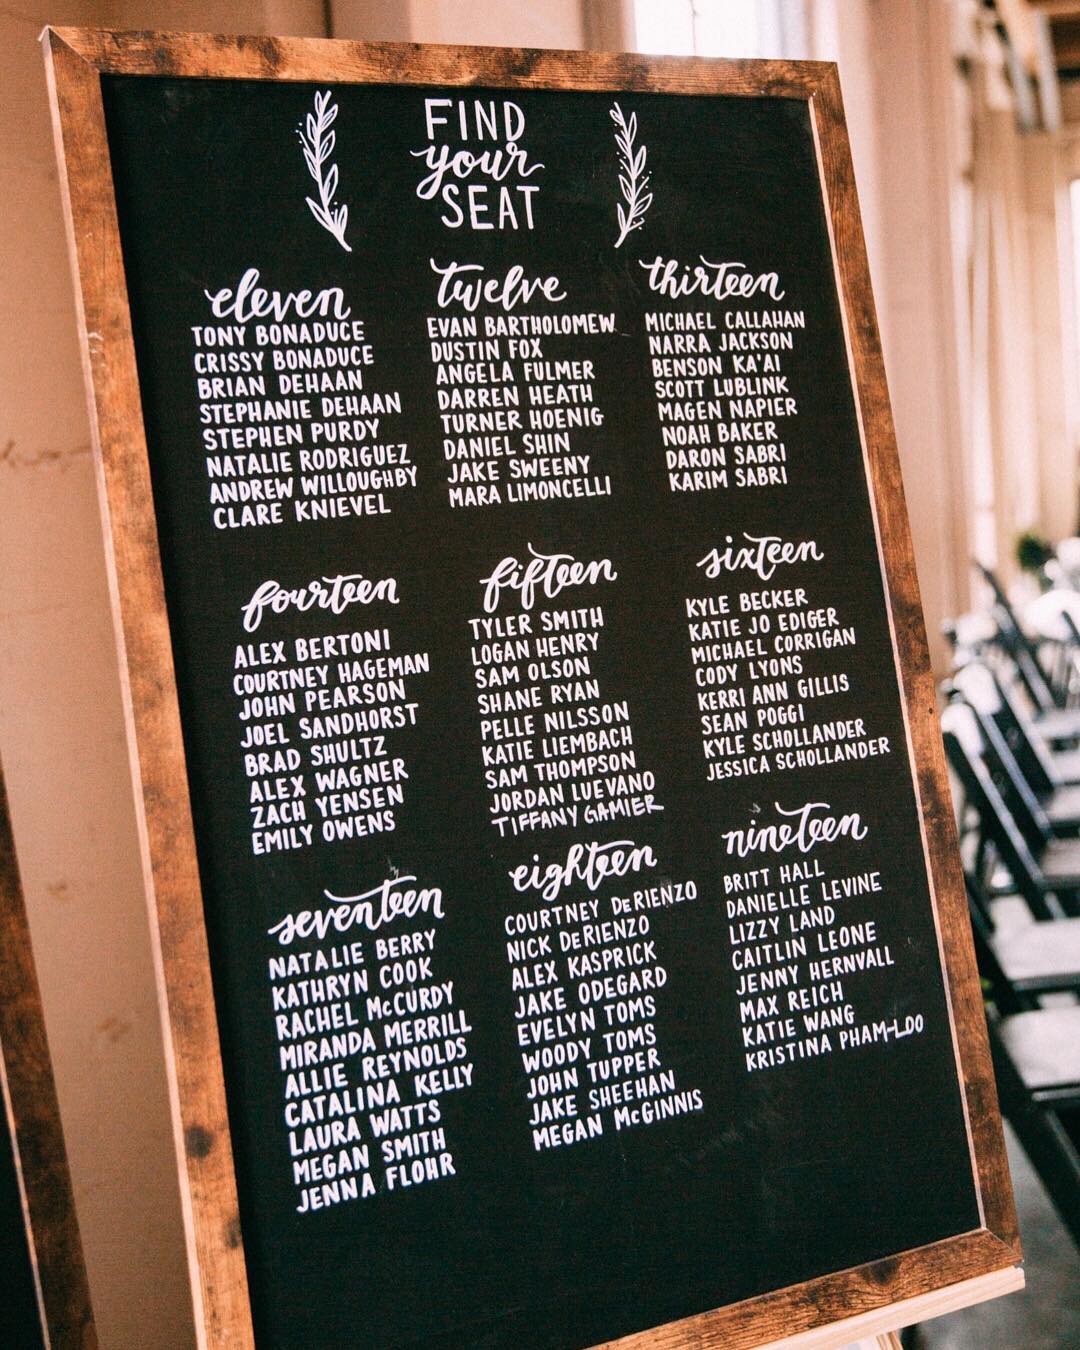 FIND
your
SEAT
eleven
TONY BONADUCE
CRISSY BONADUCE
BRIAN DEHAAN
STEPHANIE DEHAAN
STEPHEN PURDY
NATALIE RODRIGUEZ
ANDREW WILLOUGHBY
CLARE KNIEVEL
twelve
EVAN BARTHOLOMEW
DUSTIN FOX
ANGELA FULMER
DARREN HEATH
TURNER HOENIG
DANIEL SHIN
JAKE SWEENY
MARA LIMONCELLI
thirteen
MICHAEL CALLAHAN
NARRA JACKSON
BENSON KA'AI
SCOTT LUBLINK
MAGEN NAPIER
NOAH BAKER
DARON SABRI
KARIM SABRI
fourteen
ALEX BERTONI
COURTNEY HAGEMAN
JOHN PEARSON
JOEL SANDHORST
BRAD SHULTZ
ALEX WAGNER
ZACH YENSEN
EMILY OWENS
fifteen
TYLER SMITH
LOGAN HENRY
SAM OLSON
SHANE RYAN
PELLE NILSSON
KATIE LIEMBACH
SAM THOMPSON
JORDAN LUEVANO
TIFFANY
sixteen
KYLE BECKER
KATIE JO EDIGER
MICHAEL CORRIGAN
CODY LYONS
KERRI ANN GILLIS
SEAN POGGI
KYLE SCHOLLANDER
JESSICA SCHOLLANDER
seventeen
NATALIE BERRY
KATHRYN COOK
RACHEL McCURDY
MIRANDA MERRILL
ALLIE REYNOLDS
CATALINA KELLY
LAURA WATTS
MEGAN SMITH
JENNA FLOHR
eighteen
COURTNEY DeRIENZO
NICK DeRIENZO
ALEX KASPRICK
JAKE ODEGARD
EVELYN TOMS
WOODY TOMS
JOHN TUPPER
JAKE SHEEHAN
MEGAN McGINNIS
nineteen
BRITT HALL
DANIELLE LEVINE
LIZZY LAND
CAITLIN LEONE
JENNY HERNVALL
MAX REICH
KATIE WANG
KRISTINA PHAM-LOO